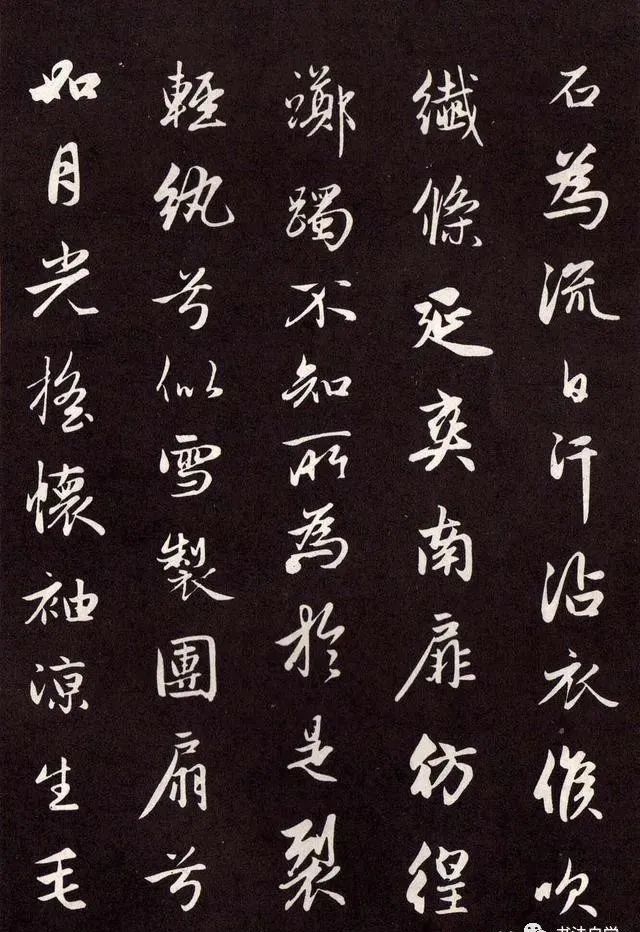 石為流日汗沾衣候吹
纎條延爽南扉彷徨
躑躅不知所為於是裂
輕紈兮似雪製團扇兮
如月光搖懷袖涼生毛